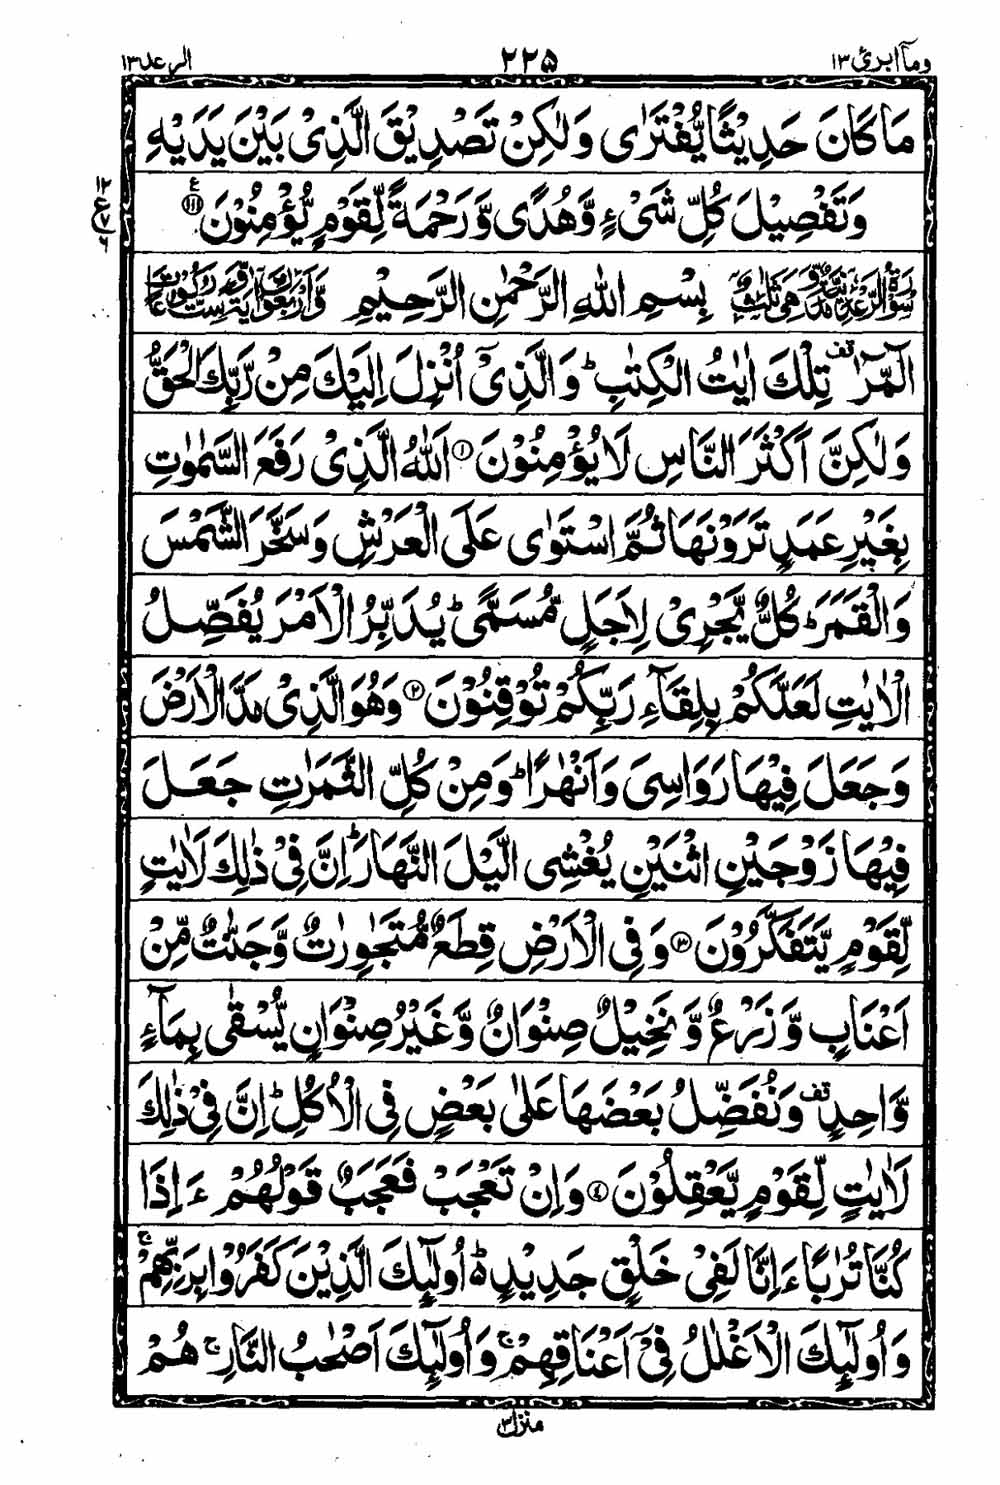 وماۤ ابرئ ۱۳ ۲۲۵ الرعد ۱۳
مَا كَانَ حَدِیْثًا یُّفْتَرٰی وَلٰكِنْ تَصْدِیْقَ الَّذِیْ بَیْنَ یَدَیْهِ
وَتَفْصِیْلَ كُلِّ شَیْءٍ وَّهُدًی وَّرَحْمَةً لِّقَوْمٍ یُّؤْمِنُوْنَ ۝۱۱۱ ع
۱۲ ع ۷ ۶
بِسْمِ اللهِ الرَّحْمٰنِ الرَّحِیْمِ
الٓمّٓرٰ قف تِلْكَ اٰیٰتُ الْكِتٰبِ ؕ وَالَّذِیْۤ اُنْزِلَ اِلَیْكَ مِنْ رَّبِّكَ الْحَقُّ
وَلٰكِنَّ اَكْثَرَ النَّاسِ لَا یُؤْمِنُوْنَ ۝۱ اَللهُ الَّذِیْ رَفَعَ السَّمٰوٰتِ
بِغَیْرِ عَمَدٍ تَرَوْنَهَا ثُمَّ اسْتَوٰی عَلَی الْعَرْشِ وَسَخَّرَ الشَّمْسَ
وَالْقَمَرَ ؕ كُلٌّ یَّجْرِیْ لِاَجَلٍ مُّسَمًّی ؕ یُدَبِّرُ الْاَمْرَ یُفَصِّلُ
الْاٰیٰتِ لَعَلَّكُمْ بِلِقَآءِ رَبِّكُمْ تُوْقِنُوْنَ ۝۲ وَهُوَ الَّذِیْ مَدَّ الْاَرْضَ
وَجَعَلَ فِیْهَا رَوَاسِیَ وَاَنْهٰرًا ؕ وَمِنْ كُلِّ الثَّمَرٰتِ جَعَلَ
فِیْهَا زَوْجَیْنِ اثْنَیْنِ یُغْشِی الَّیْلَ النَّهَارَ ؕ اِنَّ فِیْ ذٰلِكَ لَاٰیٰتٍ
لِّقَوْمٍ یَّتَفَكَّرُوْنَ ۝۳ وَفِی الْاَرْضِ قِطَعٌ مُّتَجٰوِرٰتٌ وَّجَنّٰتٌ مِّنْ
اَعْنَابٍ وَّزَرْعٌ وَّنَخِیْلٌ صِنْوَانٌ وَّغَیْرُ صِنْوَانٍ یُّسْقٰی بِمَآءٍ
وَّاحِدٍ قف وَنُفَضِّلُ بَعْضَهَا عَلٰی بَعْضٍ فِی الْاُكُلِ ؕ اِنَّ فِیْ ذٰلِكَ
لَاٰیٰتٍ لِّقَوْمٍ یَّعْقِلُوْنَ ۝۴ وَاِنْ تَعْجَبْ فَعَجَبٌ قَوْلُهُمْ ءَاِذَا
كُنَّا تُرٰبًا ءَاِنَّا لَفِیْ خَلْقٍ جَدِیْدٍ ۬ؕ اُولٰٓئِكَ الَّذِیْنَ كَفَرُوْا بِرَبِّهِمْ ۚ
وَاُولٰٓئِكَ الْاَغْلٰلُ فِیْۤ اَعْنَاقِهِمْ ۚ وَاُولٰٓئِكَ اَصْحٰبُ النَّارِ ۚ هُمْ
منزل ۳